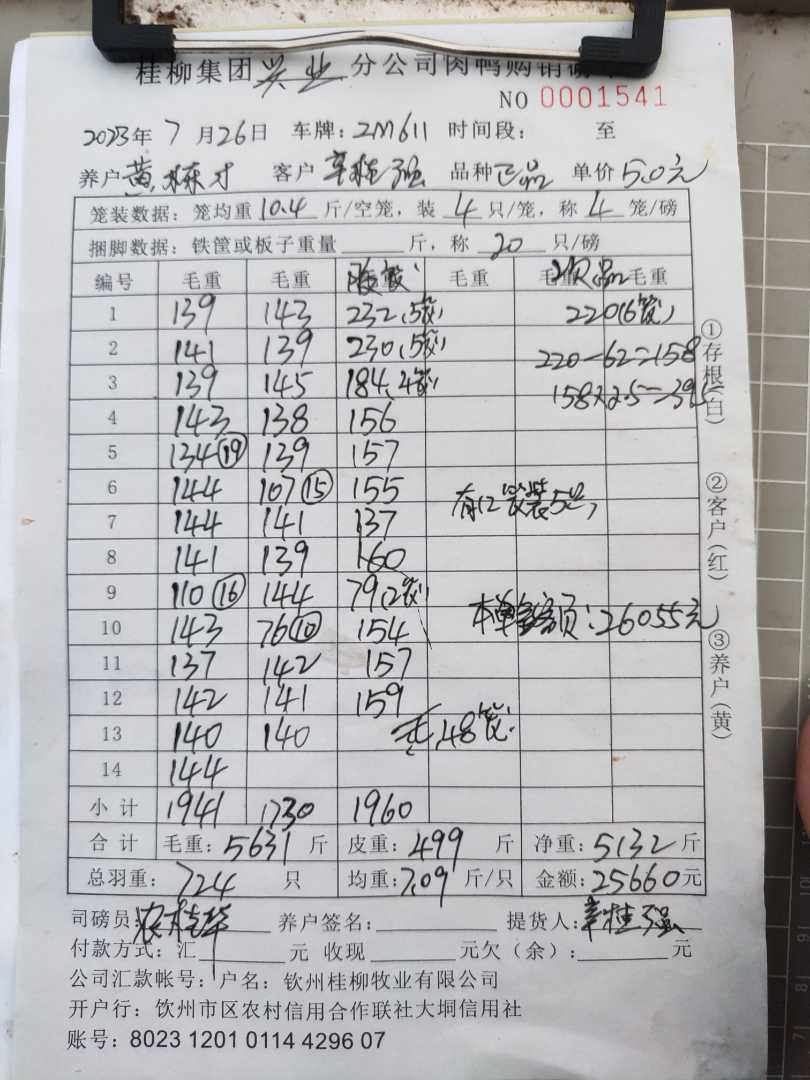 桂柳集团兴业分公司肉鸭购销
NO 0001541
2023年7月26日 车牌:2M611 时间段: 至
养户黄栋才 客户辛桂强 品种正品 单价5.0元
笼装数据:笼均重10.4斤/空笼,装4只/笼,称4笼/磅
捆脚数据:铁筐或板子重量 斤,称20只/磅
编号 毛重 毛重 毛重 毛重 次品 毛重
1 139 143 232(5笼) 220(6笼)
2 141 139 230(5笼) 220-62=158
3 139 145 184(4笼) 158×2.5=395
4 143 138 156
5 134⑲ 139 157
6 144 107⑮ 155 有12笼装5只
7 144 141 137
8 141 139 160
9 110⑯ 144 79(2笼)
10 143 76⑩ 154 本单金额:26055元
11 137 142 157
12 142 141 159
13 140 140 48笼
14 144
小计 1941 1730 1960
合计 毛重:5631斤 皮重:499斤 净重:5132斤
总羽重:724只 均重:7.09斤/只 金额:25660元
司磅员:农桂华 养户签名: 提货人:辛桂强
付款方式:汇 元 收现 元欠(余): 元
公司汇款帐号:户名:钦州桂柳牧业有限公司
开户行:饮州市区农村信用合作联社大垌信用社
账号:8023 1201 0114 4296 07
①存根(白)
②客户(红)
③养户(黄)